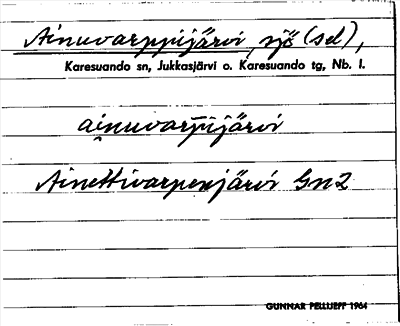 Ainuvarppijärvi, sjö (sel),
Karesuando sn, Jukkasjärvi o. Karesuando tg, Nb. l.
ai̯nuvarp̄ijärvi
Ainettivarpenjärvi Gn2
GUNNAR PELLIJEFF 1964